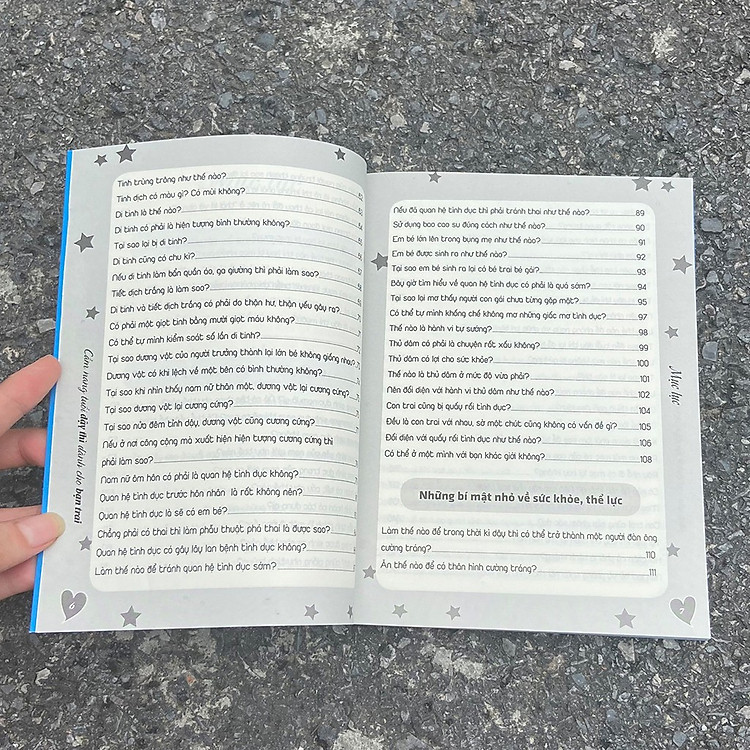 Tinh trùng trông như thế nào?
Tinh dịch có màu gì? Có mùi không? 62
Di tinh là thế nào?
Di tinh có phải là hiện tượng bình thường không?
Tại sao lại bị di tinh?
Di tinh cũng có chu kì?
Nếu di tinh làm bẩn quần áo, ga giường thì phải làm sao?
Tiết dịch trắng là làm sao?
Di tinh và tiết dịch trắng có phải do thận hư, thận yếu gây ra?
Có phải một giọt tinh bằng mười giọt máu không?
Có thể tự mình kiểm soát số lần di tinh?
Tại sao dương vật của người trưởng thành lại lớn bé không giống nhau?
Dương vật có khi lệch về một bên có bình thường không?
Tại sao khi nhìn thấy nam nữ thân mật, dương vật lại cương cứng?
Tại sao dương vật lại cương cứng?
Tại sao nửa đêm tỉnh dậy, dương vật cũng cương cứng?
Nếu ở nơi công cộng mà xuất hiện hiện tượng cương cứng thì
phải làm sao?
Nam nữ ôm hôn có phải là quan hệ tình dục không?
Quan hệ tình dục trước hôn nhân là rất không nên?
Quan hệ tình dục là sẽ có em bé?
Chẳng phải có thai thì làm phẫu thuật phá thai là được sao?
Quan hệ tình dục có gây lây lan bệnh tình dục không?
Làm thế nào để tránh quan hệ tình dục sớm?
Cẩm nang tuổi dậy thì dành cho bạn trai
6
Nếu đã quan hệ tình dục thì phải tránh thai như thế nào? 89
Sử dụng bao cao su đúng cách như thế nào? 90
Em bé lớn lên trong bụng mẹ như thế nào? 91
Em bé được sinh ra như thế nào? 92
Tại sao em bé sinh ra lại có bé trai bé gái? 93
Bây giờ tìm hiểu về quan hệ tình dục có phải là quá sớm? 94
Tại sao lại mơ thấy người con gái chưa từng gặp mặt? 95
Có thể tự mình khống chế không mơ những giấc mơ tình dục? 97
Thế nào là hành vi tự sướng? 98
Thủ dâm có phải là chuyện rất xấu không? 99
Thủ dâm có lợi cho sức khỏe? 100
Thế nào là thủ dâm ở mức độ vừa phải? 101
Nên đối diện với hành vi thủ dâm như thế nào? 102
Con trai cũng bị quấy rối tình dục? 104
Đều là con trai với nhau, sờ một chút cũng không có vấn đề gì? 105
Đối diện với quấy rối tình dục như thế nào? 106
Có thể ở một mình với bạn khác giới không? 108
Những bí mật nhỏ về sức khỏe, thể lực
Làm thế nào để trong thời kì dậy thì có thể trở thành một người đàn ông
cường tráng? 110
Ăn thế nào để có thân hình cường tráng? 111
Mục lục
7